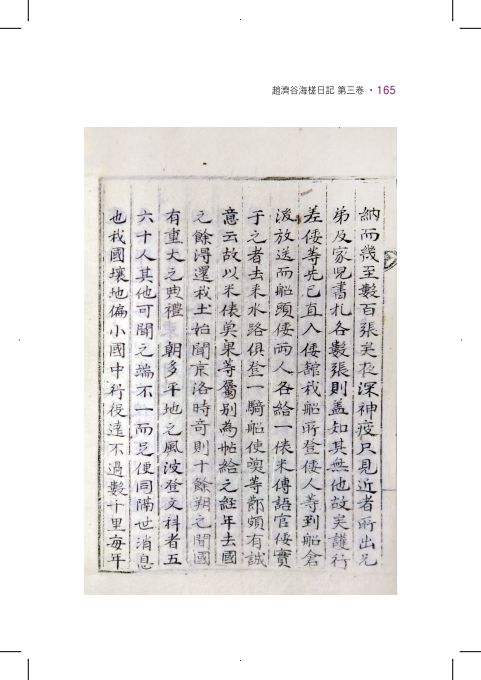 趙濟谷海槎日記 第三卷 · 165
納而幾至數百張矣夜深神疲只見近者所出兄
弟及家兒書札各數張則盖如其無他故矣護行
差倭等先已直入倭舘我船所登倭人等到船倉
後放送而船頭倭兩人各給一俵米傳語官倭實
于之者去來水路俱登一騎船使喚等節頗有誠
意云故以米俵奠果等屬別為帖給之經年去國
之餘得還我土始聞京洛時奇則十餘朔之間國
有重大之典禮 朝多平地之風波登文科者五
六十人其他可聞之端不一而足便同隔世消息
也我國壤地偏小國中行役遠不過數千里每年